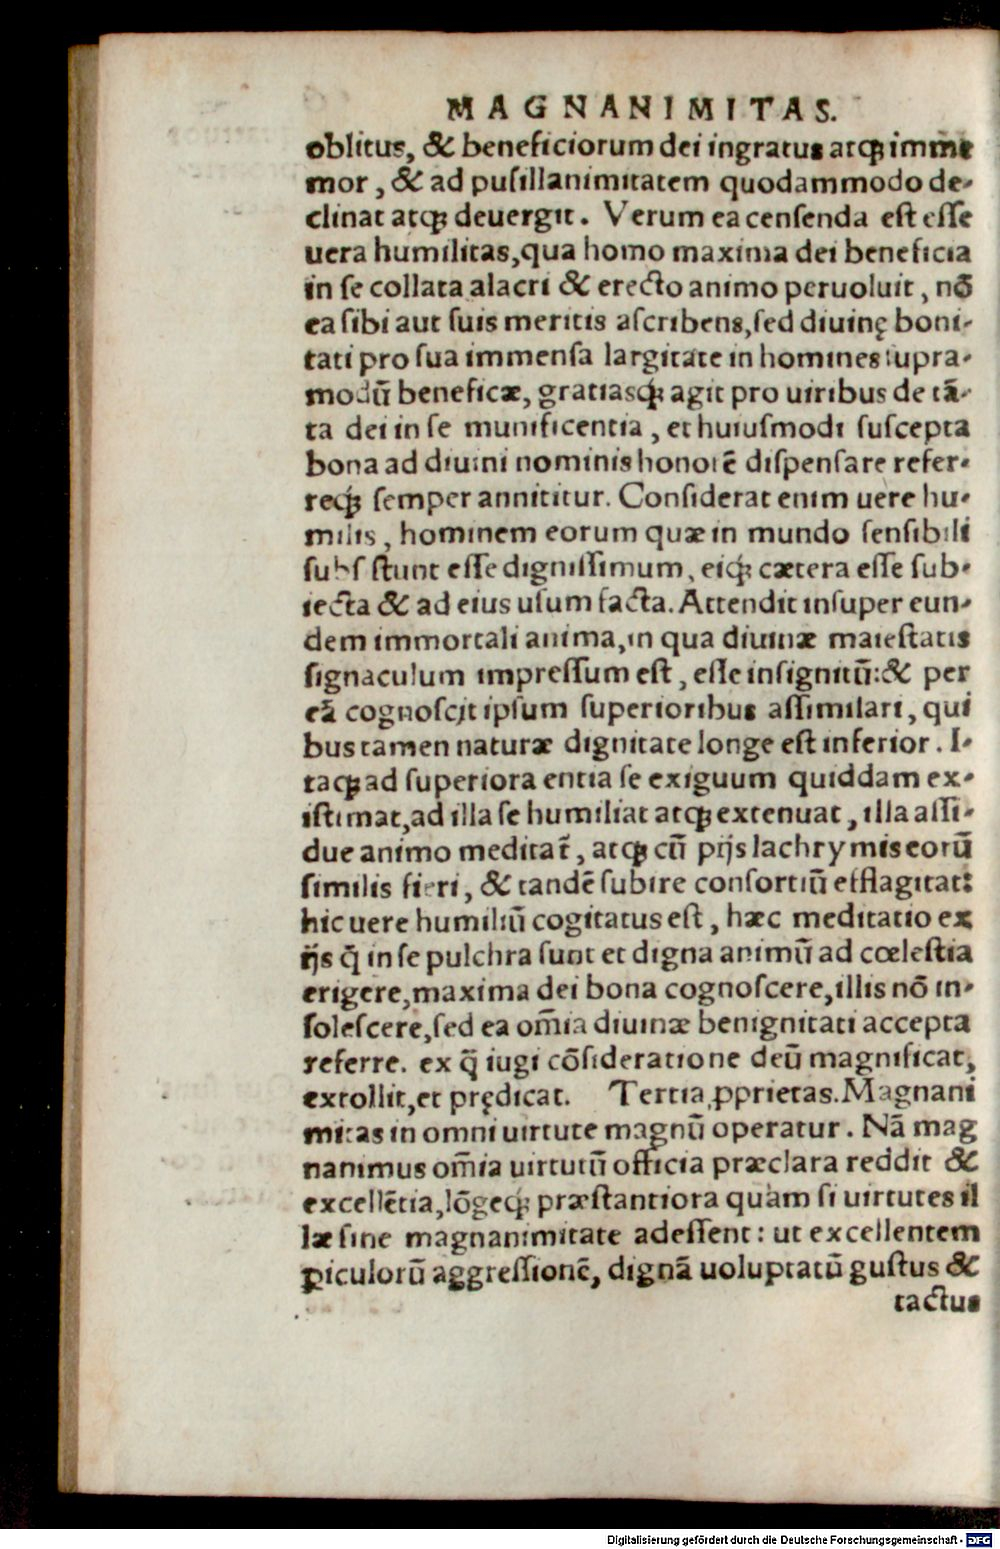 MAGNANIMITAS.
oblitus, & beneficiorum dei ingratus atqꝫ imme
mor, & ad pusillanimitatem quodammodo de-
clinat atqꝫ deuergit. Verum ea censenda est esse
uera humilitas, qua homo maxima dei beneficia
in se collata alacri & erecto animo peruoluit, nō
ea sibi aut suis meritis ascribens, sed diuinę boni-
tati pro sua immensa largitate in homines supra-
modū beneficæ, gratiasqꝫ agit pro uiribus de tā-
ta dei in se munificentia, et huiusmodi suscepta
bona ad diuini nominis honorē dispensare refer-
reqꝫ semper annititur. Considerat enim uere hu-
milis, hominem eorum quæ in mundo sensibili
subsistunt esse dignissimum, eiqꝫ cætera esse sub-
iecta & ad eius usum facta. Attendit insuper eun-
dem immortali anima, in qua diuinæ maiestatis
signaculum impressum est, esse insignitū: & per
eā cognoscit ipsum superioribus assimilari, qui
bus tamen naturæ dignitate longe est inferior. I-
taqꝫ ad superiora entia se exiguum quiddam ex-
istimat, ad illa se humiliat atqꝫ extenuat, illa assi-
due animo meditat̄, atqꝫ cū pijs lachrymis eorū
similis fieri, & tandē subire consortiū efflagitat:
hic uere humiliū cogitatus est, hæc meditatio ex
ijs q̄ in se pulchra sunt et digna animū ad cœlestia
erigere, maxima dei bona cognoscere, illis nō in-
solescere, sed ea om̄ia diuinæ benignitati accepta
referre. ex q̄ iugi cōsideratione deū magnificat,
extollit, et prędicat. Tertia ꝓprietas. Magnani
mitas in omni uirtute magnū operatur. Nā mag
nanimus om̄ia uirtutū officia præclara reddit &
excellētia, lōgeqꝫ præstantiora quàm si uirtutes il
læ sine magnanimitate adessent: ut excellentem
ꝑiculorū aggressionē, dignā uoluptatū gustus &
tactus
Digitalisierung gefördert durch die Deutsche Forschungsgemeinschaft - DFG